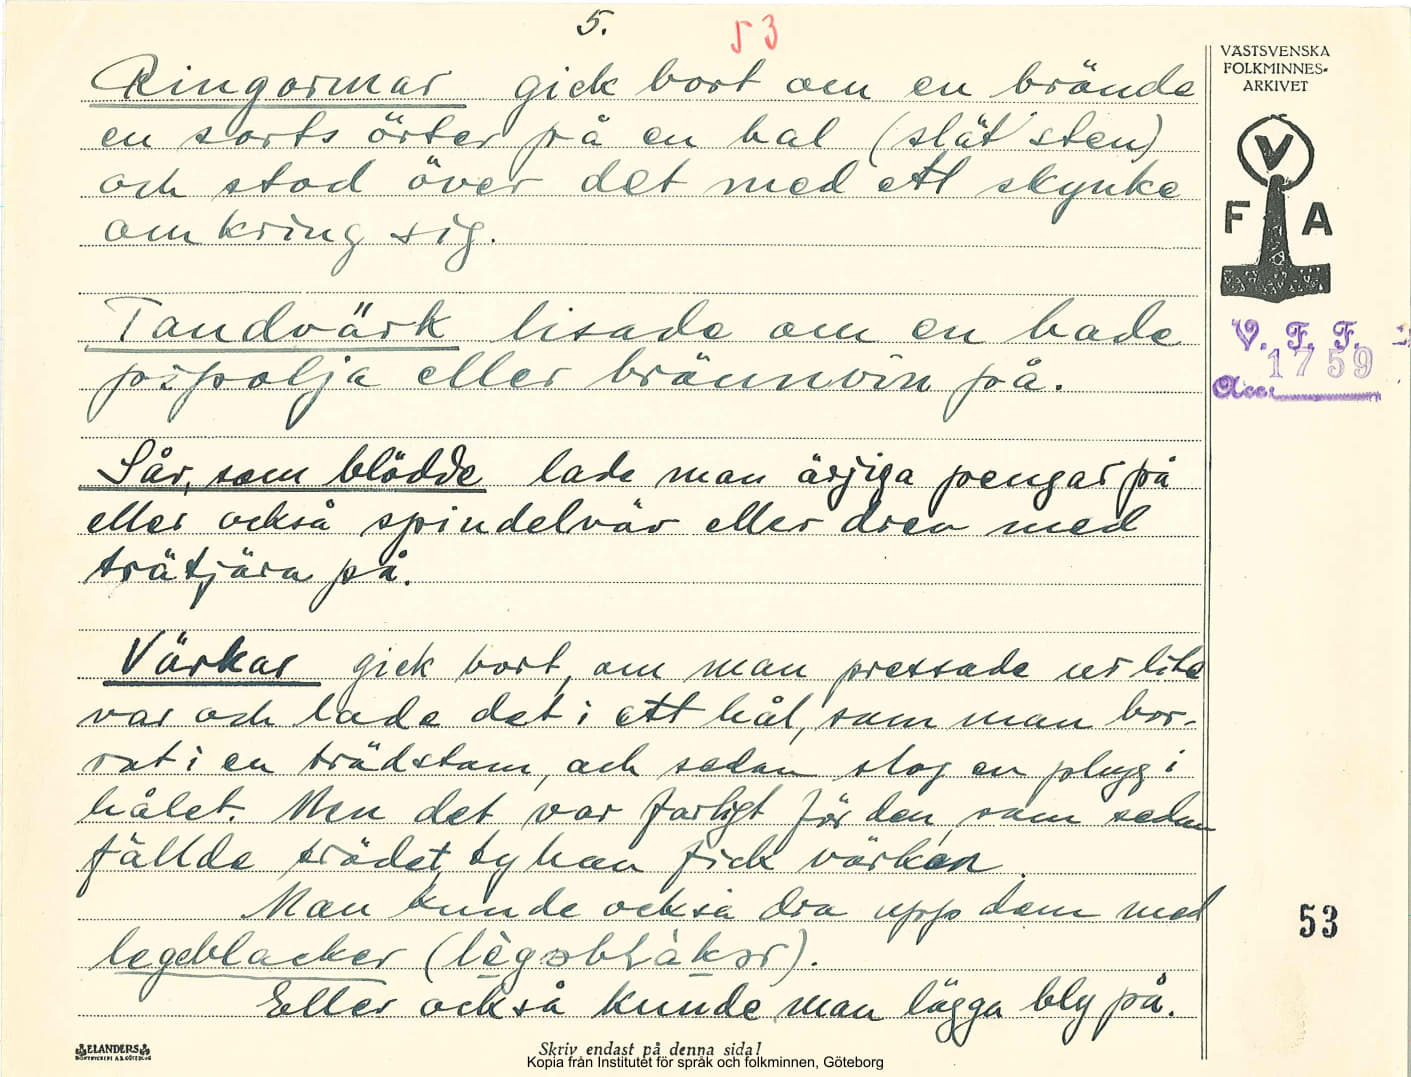 5.
53
VÄSTSVENSKA
FOLKMINNES-
ARKIVET
V
F A
V. F. F.
1759
Acc.
Ringormar gick bort om en brände
en sorts örter på en hal (slät sten)
och stod över det med ett skynke
omkring sig.
Tandvärk lisade om en hade
pispolja eller brännvin på.
Sår, som blödde lade man ärjiga pengar på
eller också spindelväv eller drev med
trätjära på.
Värkar gick bort, om man pressade ur lite
var och lade det i ett hål, som man bor-
rat i en trädstam, och sedan slog en plugg i
hålet. Men det var farligt för den, som sedan
fällde trädet, ty han fick värken.
Man kunde också dra upp dem med
legeblacker
Eller också kunde man lägga bly på.
53
ELANDERS
Skriv endast på denna sida!
Kopia från Institutet för språk och folkminnen, Göteborg